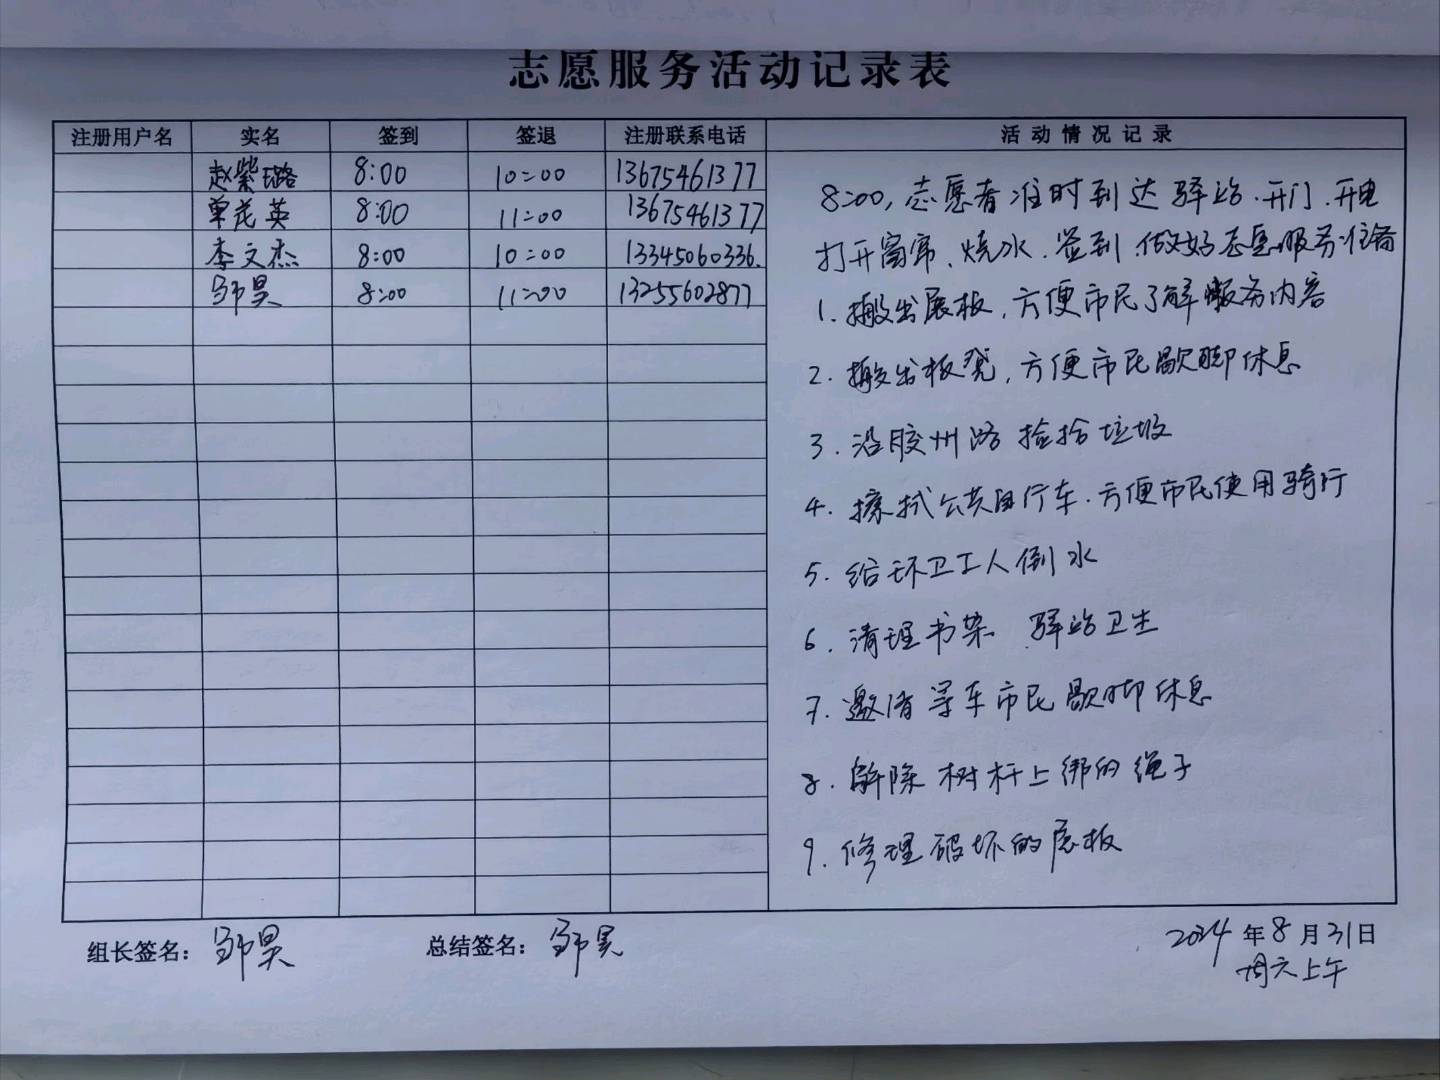 志愿服务活动记录表
注册用户名 实名 签到 签退 注册联系电话 活动情况记录
赵紫璐 8:00 10:00 13675461377
单茂英 8:00 11:00 13675461377
李文杰 8:00 10:00 13345060336.
邹昊 8:00 11:00 13255602877
8:00,志愿者准时到达驿站.开门.开电
打开窗帘.烧水.签到.做好志愿服务准备
1.搬出展板,方便市民了解服务内容
2.搬出板凳,方便市民歇脚休息
3.沿胶州路捡拾垃圾
4.擦拭公共自行车.方便市民使用骑行
5.给环卫工人倒水
6.清理书架.驿站卫生
7.邀请等车市民歇脚休息
8.解除树杆上绑的绳子
9.修理破坏的展板
组长签名:邹昊 总结签名:邹昊 2024年8月31日
周六上午